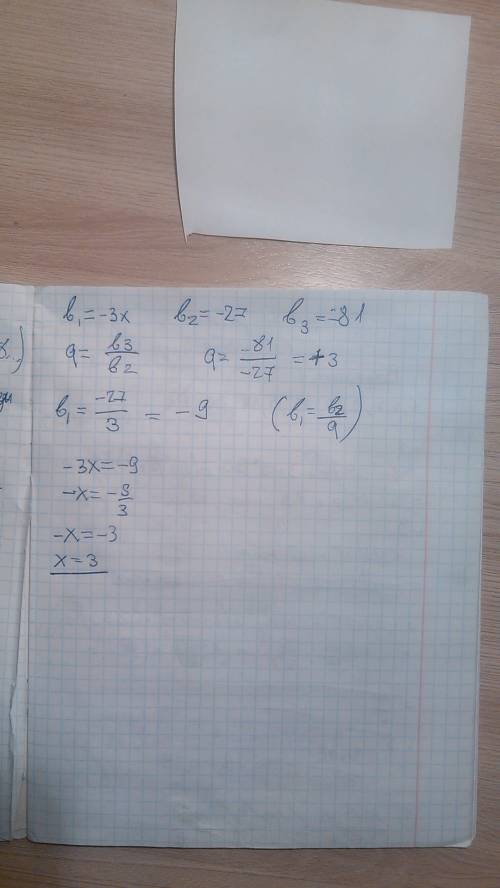 b₁=-3x b₂=-27 b₃=-81
q= b₃/b₂ q= -81/-27 =+3
b₁= -27/3 = -9 (b₁= b₂/q)
-3x=-9
-x=-9/3
-x=-3
x=3